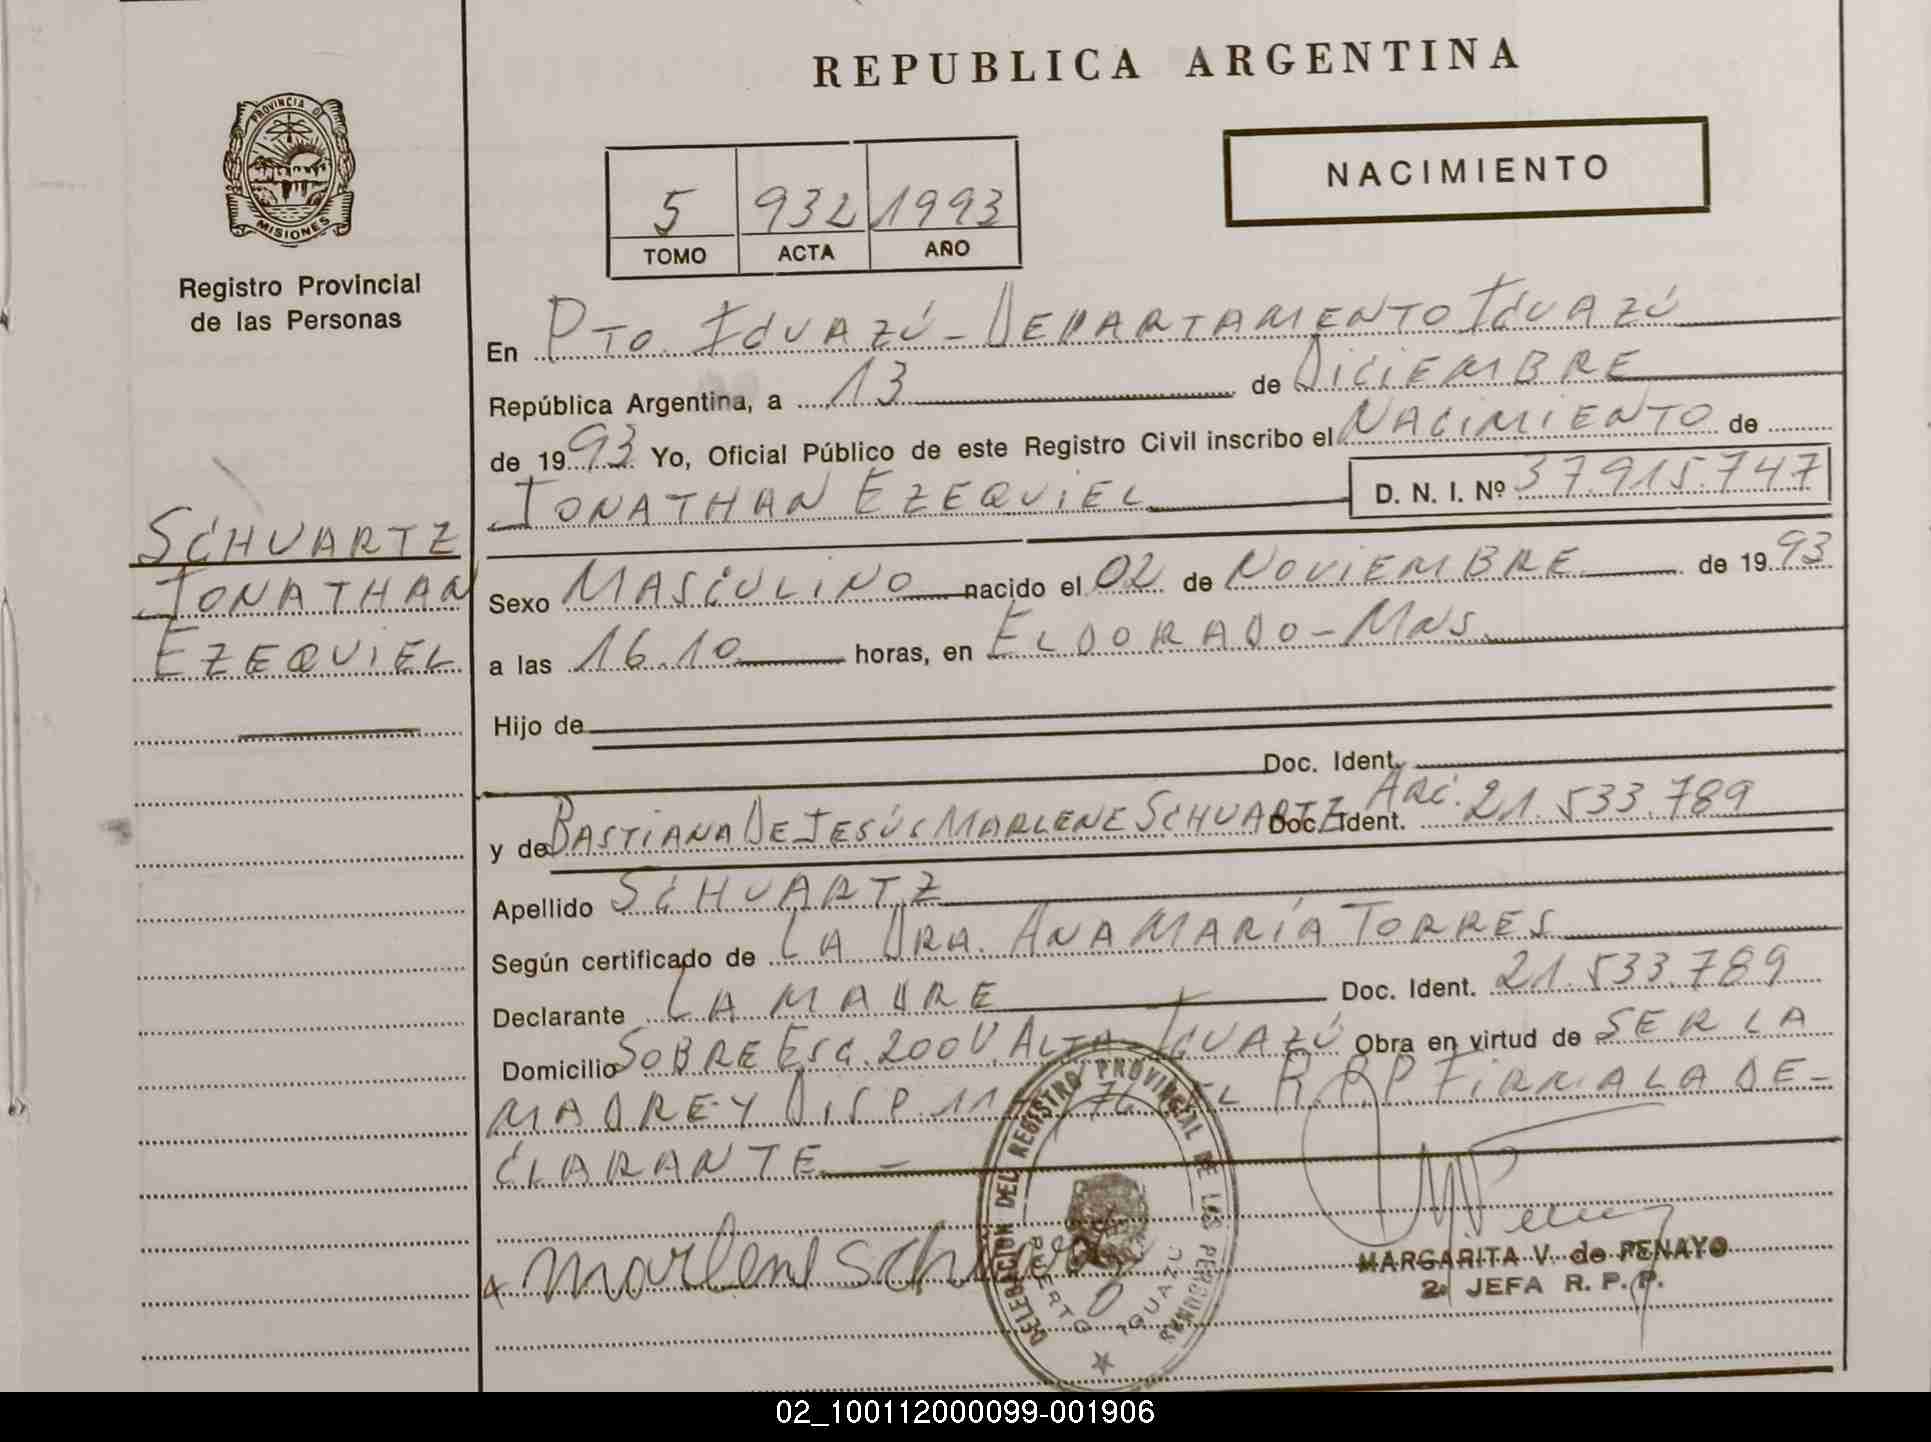 REPUBLICA ARGENTINA
PROVINCIA D
MISIONES
Registro Provincial
de las Personas
NACIMIENTO
5 932 1993
TOMO ACTA AÑO
En PTO. IGUAZÚ - DEPARTAMENTO IGUAZÚ
República Argentina, a 13 de DICIEMBRE
de 1993 Yo, Oficial Público de este Registro Civil inscribo el NACIMIENTO de
JONATHAN EZEQUIEL D. N. I. Nº 37.915.747
SCHVARTZ
JONATHAN
EZEQUIEL
Sexo MASCULINO nacido el 02 de NOVIEMBRE de 1993
a las 16.10 horas, en ELDORADO - MNS.
Hijo de
Doc. Ident.
y de BASTIANA DE JESÚS MARLENE SCHVARTZ Doc. Ident. ARG. 21.533.789
Apellido SCHVARTZ
Según certificado de LA DRA. ANA MARÍA TORRES
Declarante LA MADRE Doc. Ident. 21.533.789
Domicilio SOBRE ESC. 200 V. ALTA - IGUAZÚ Obra en virtud de SER LA
MADRE Y DISP. 11 76 EL R.P.P. FIRMA LA DE-
CLARANTE
marlene
DELEGACION DEL REGISTRO PROVINCIAL DE LAS PERSONAS
PUERTO IGUAZU
MARGARITA V. de PENAYO
2. JEFA R. P. P.
02_100112000099-001906